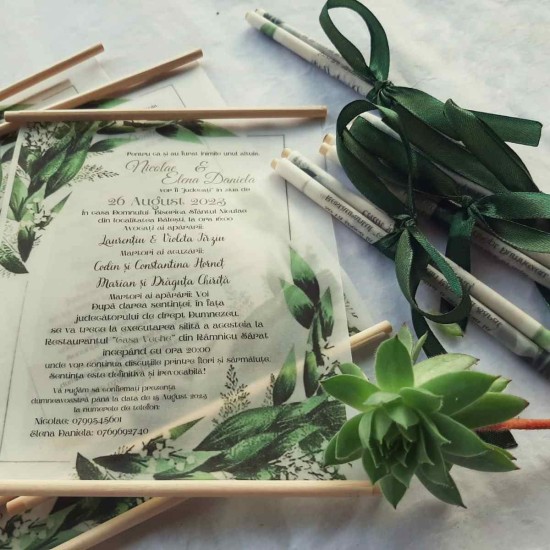 Pentru ca și-au furat inimile unul altuia,
Nicolae &
Elena Daniela
vor fi "judecați" în ziua de
26 August 2023
în casa Domnului, Biserica Sfântul Nicolae
din localitatea Bălești, la ora 16:00
Avocați ai apărării:
Laurențiu & Violeta Tîrziu
Martori ai acuzării:
Codin și Constantina Horneț
Marian și Drăguța Chiriță
Martori ai apărării: Voi
După darea sentinței, în fața
judecătorului de drept Dumnezeu,
se va trece la executarea silită a acesteia la
Restaurantul "Casa Veche" din Râmnicu Sărat
începând cu ora 20:00
unde vor continua discuțiile printre flori și sărmăluțe.
Sentința este definitivă și irevocabilă!
Vă rugăm să confirmați prezența
dumneavoastră până la data de 15 August 2023
la numerele de telefon:
Nicolae: 0799545601
Elena Daniela: 0769692740